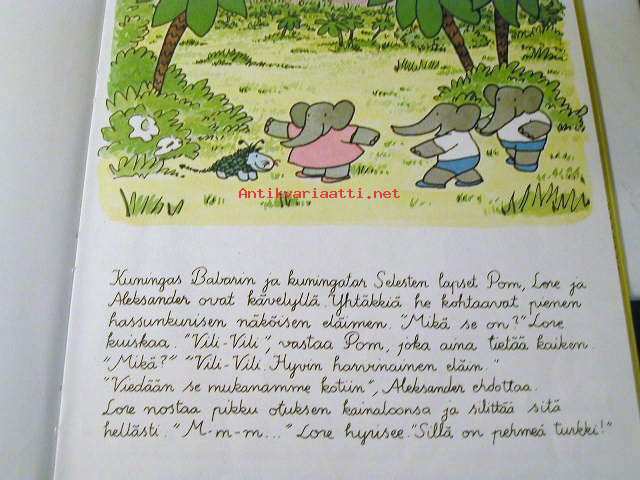 Antikvariaatti.net
Kuningas Babarin ja kuningatar Selesten lapset Pom, Lore ja
Aleksander ovat kävelyllä. Yhtäkkiä he kohtaavat pienen
hassunkurisen näköisen eläimen. "Mikä se on?" Lore
kuiskaa. "Vili-Vili", vastaa Pom, joka aina tietää kaiken.
"Mikä?" "Vili-Vili. Hyvin harvinainen eläin."
"Viedään se mukanamme kotiin", Aleksander ehdottaa.
Lore nostaa pikku otuksen kainaloonsa ja silittää sitä
hellästi. "M-m-m..." Lore hyrisee. "Sillä on pehmeä turkki!"